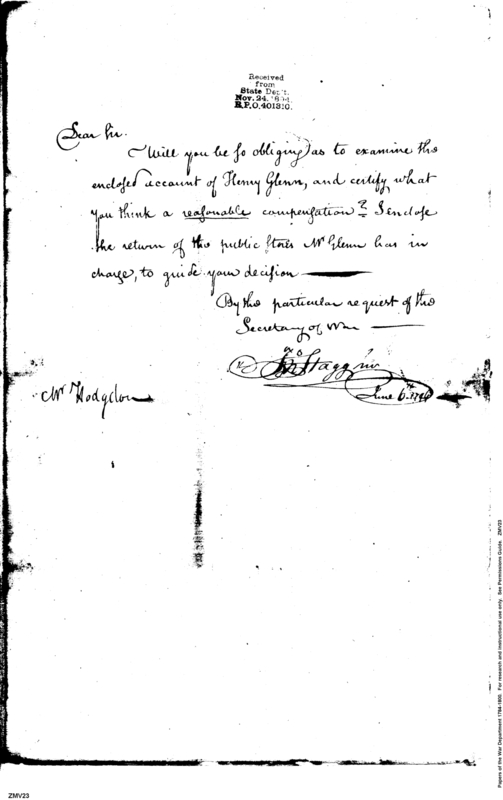 Received
from
State Dep't.
Nov. 24. 1894.
R.P.O. 401310.
Dear Sir.
Will you be so obliging as to examine the
enclosed account of Henry Glenn, and certify what
you think a reasonable compensation? I enclose
the return of the public stores Mr Glenn has in
charge, to guide your decision
By the particular request of the
Secretary of War
Jno Stagg Junr
Mr Hodgdon
June 6th
ZMV23
Papers of the War Department 1784-1800. For research and instructional use only. See Permissions Guide. ZMV23